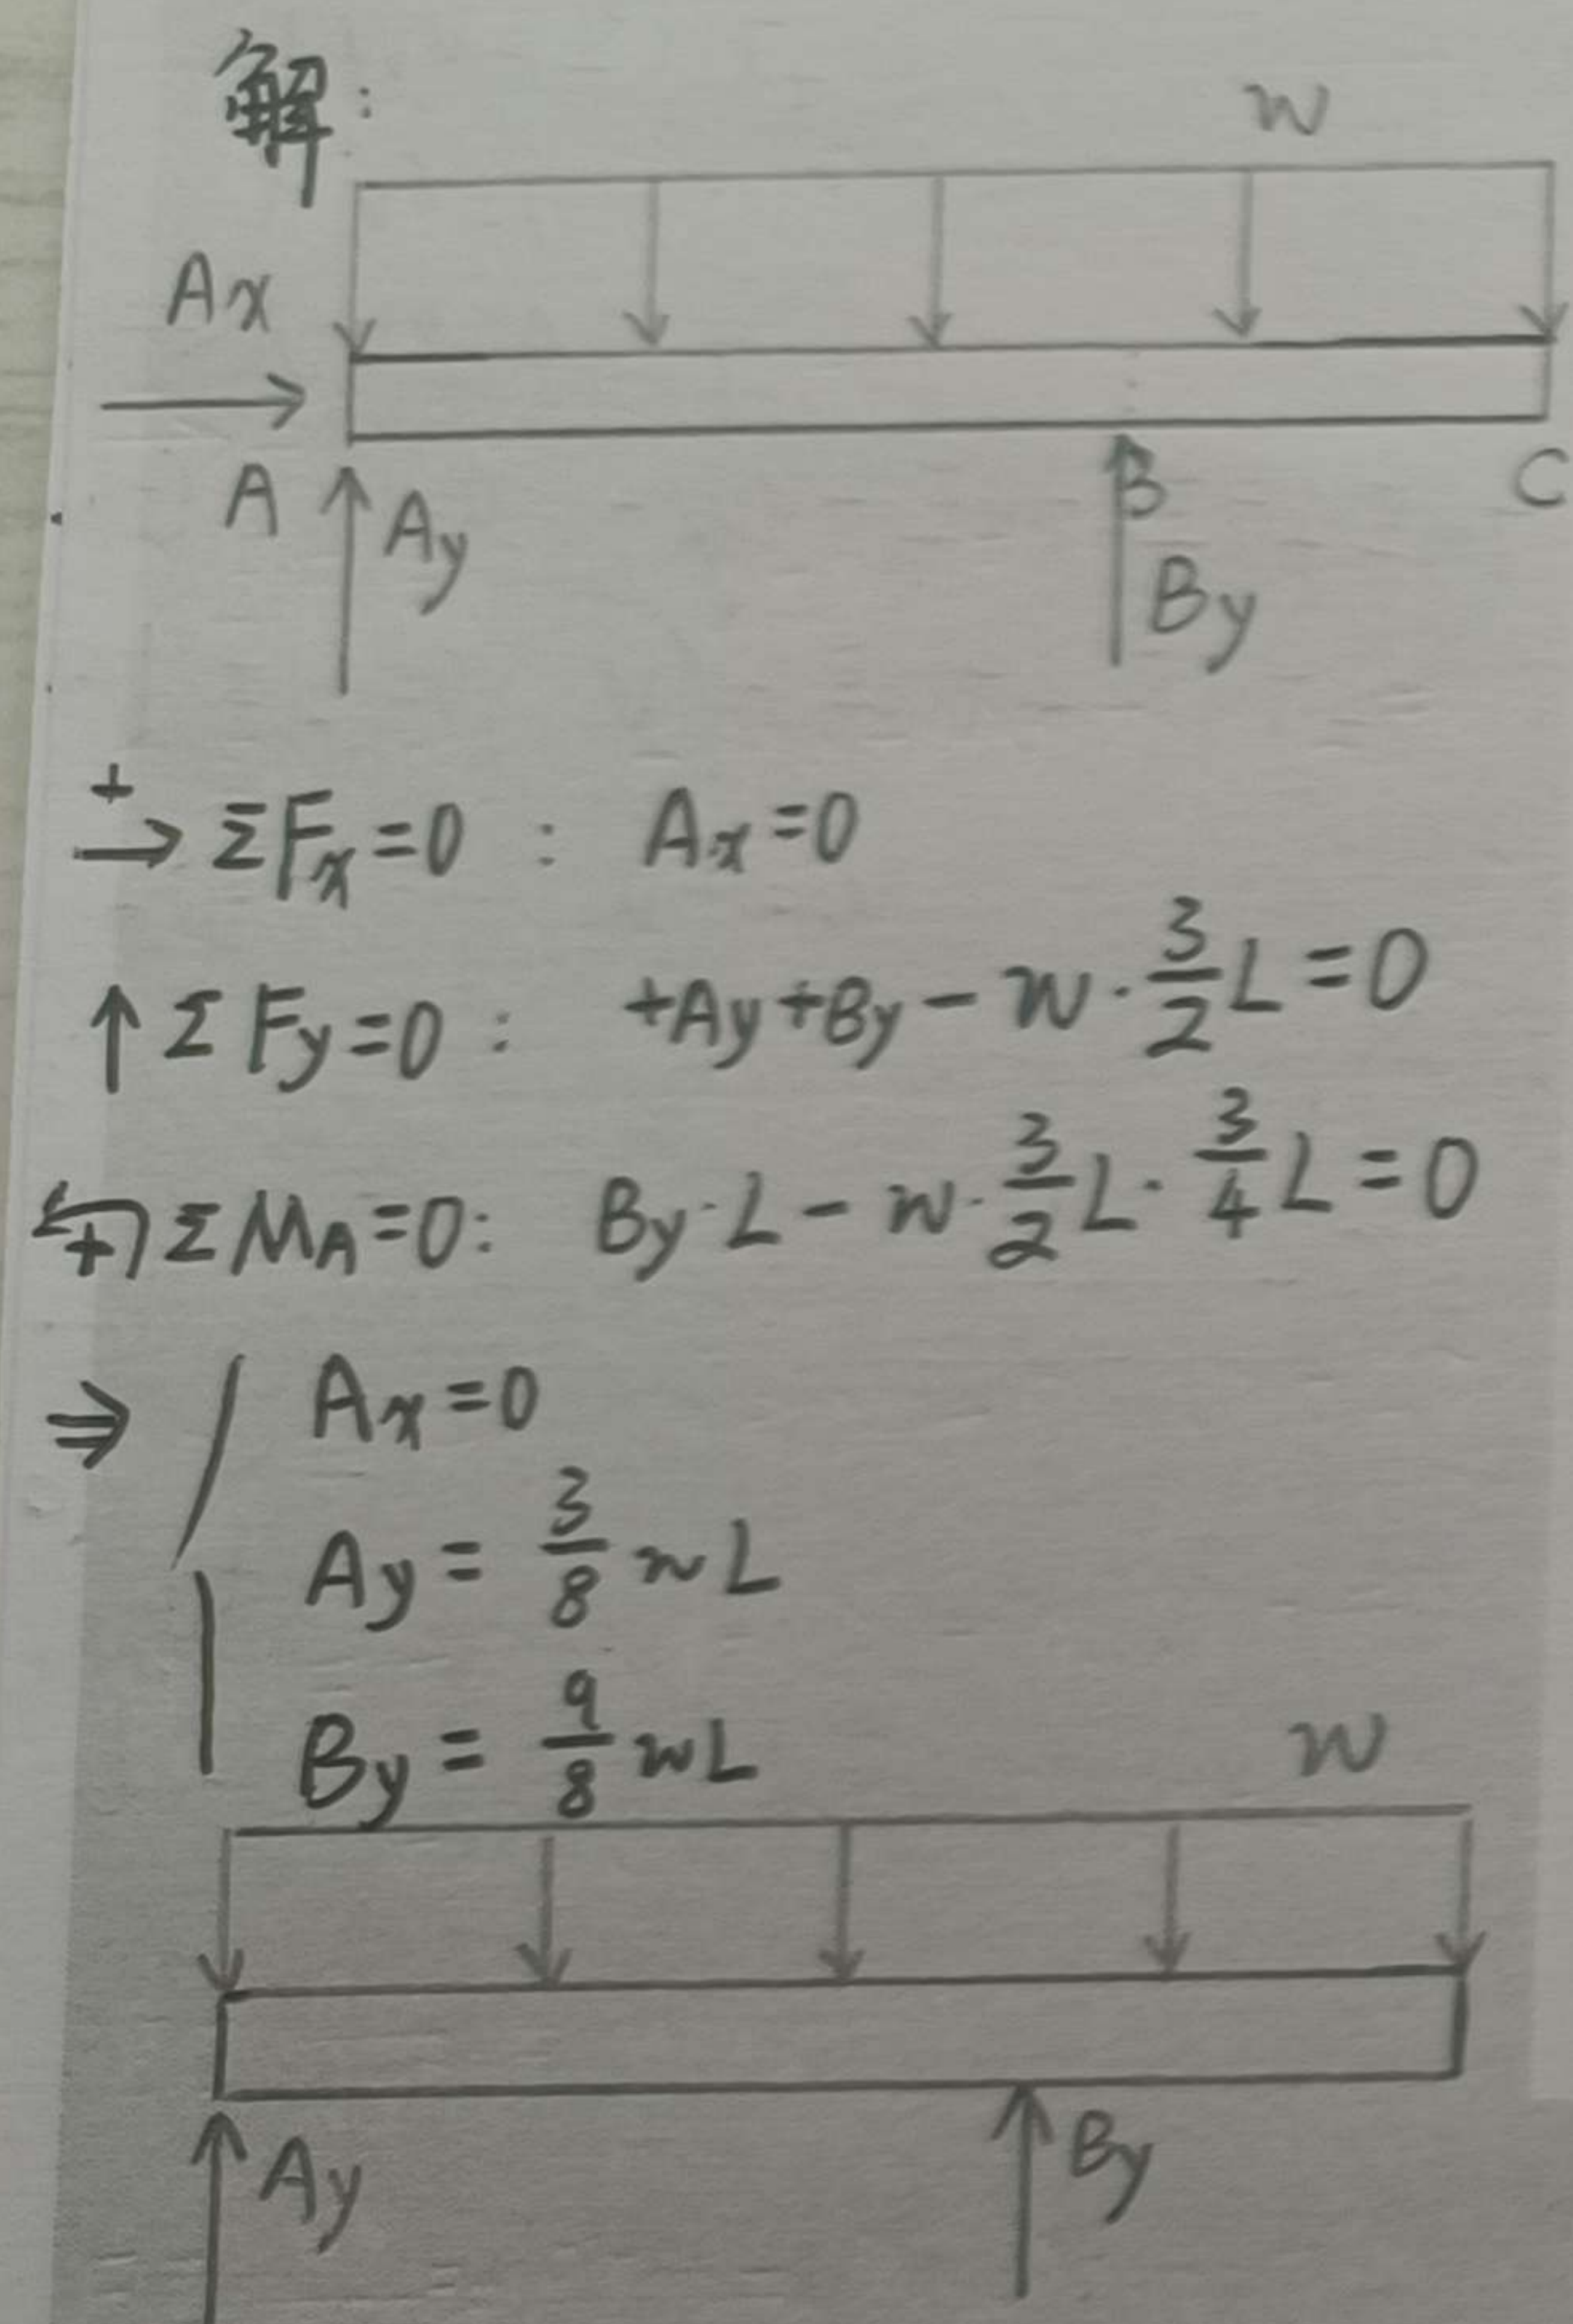 解:
w
Ax
A Ay B C
By
+→ ΣFx=0 : Ax=0
↑ΣFy=0: +Ay+By-w·3/2L=0
↶+ ΣMA=0: By·L-w·3/2L·3/4L=0
⇒ Ax=0
Ay=3/8wL
By=9/8wL
w
Ay By